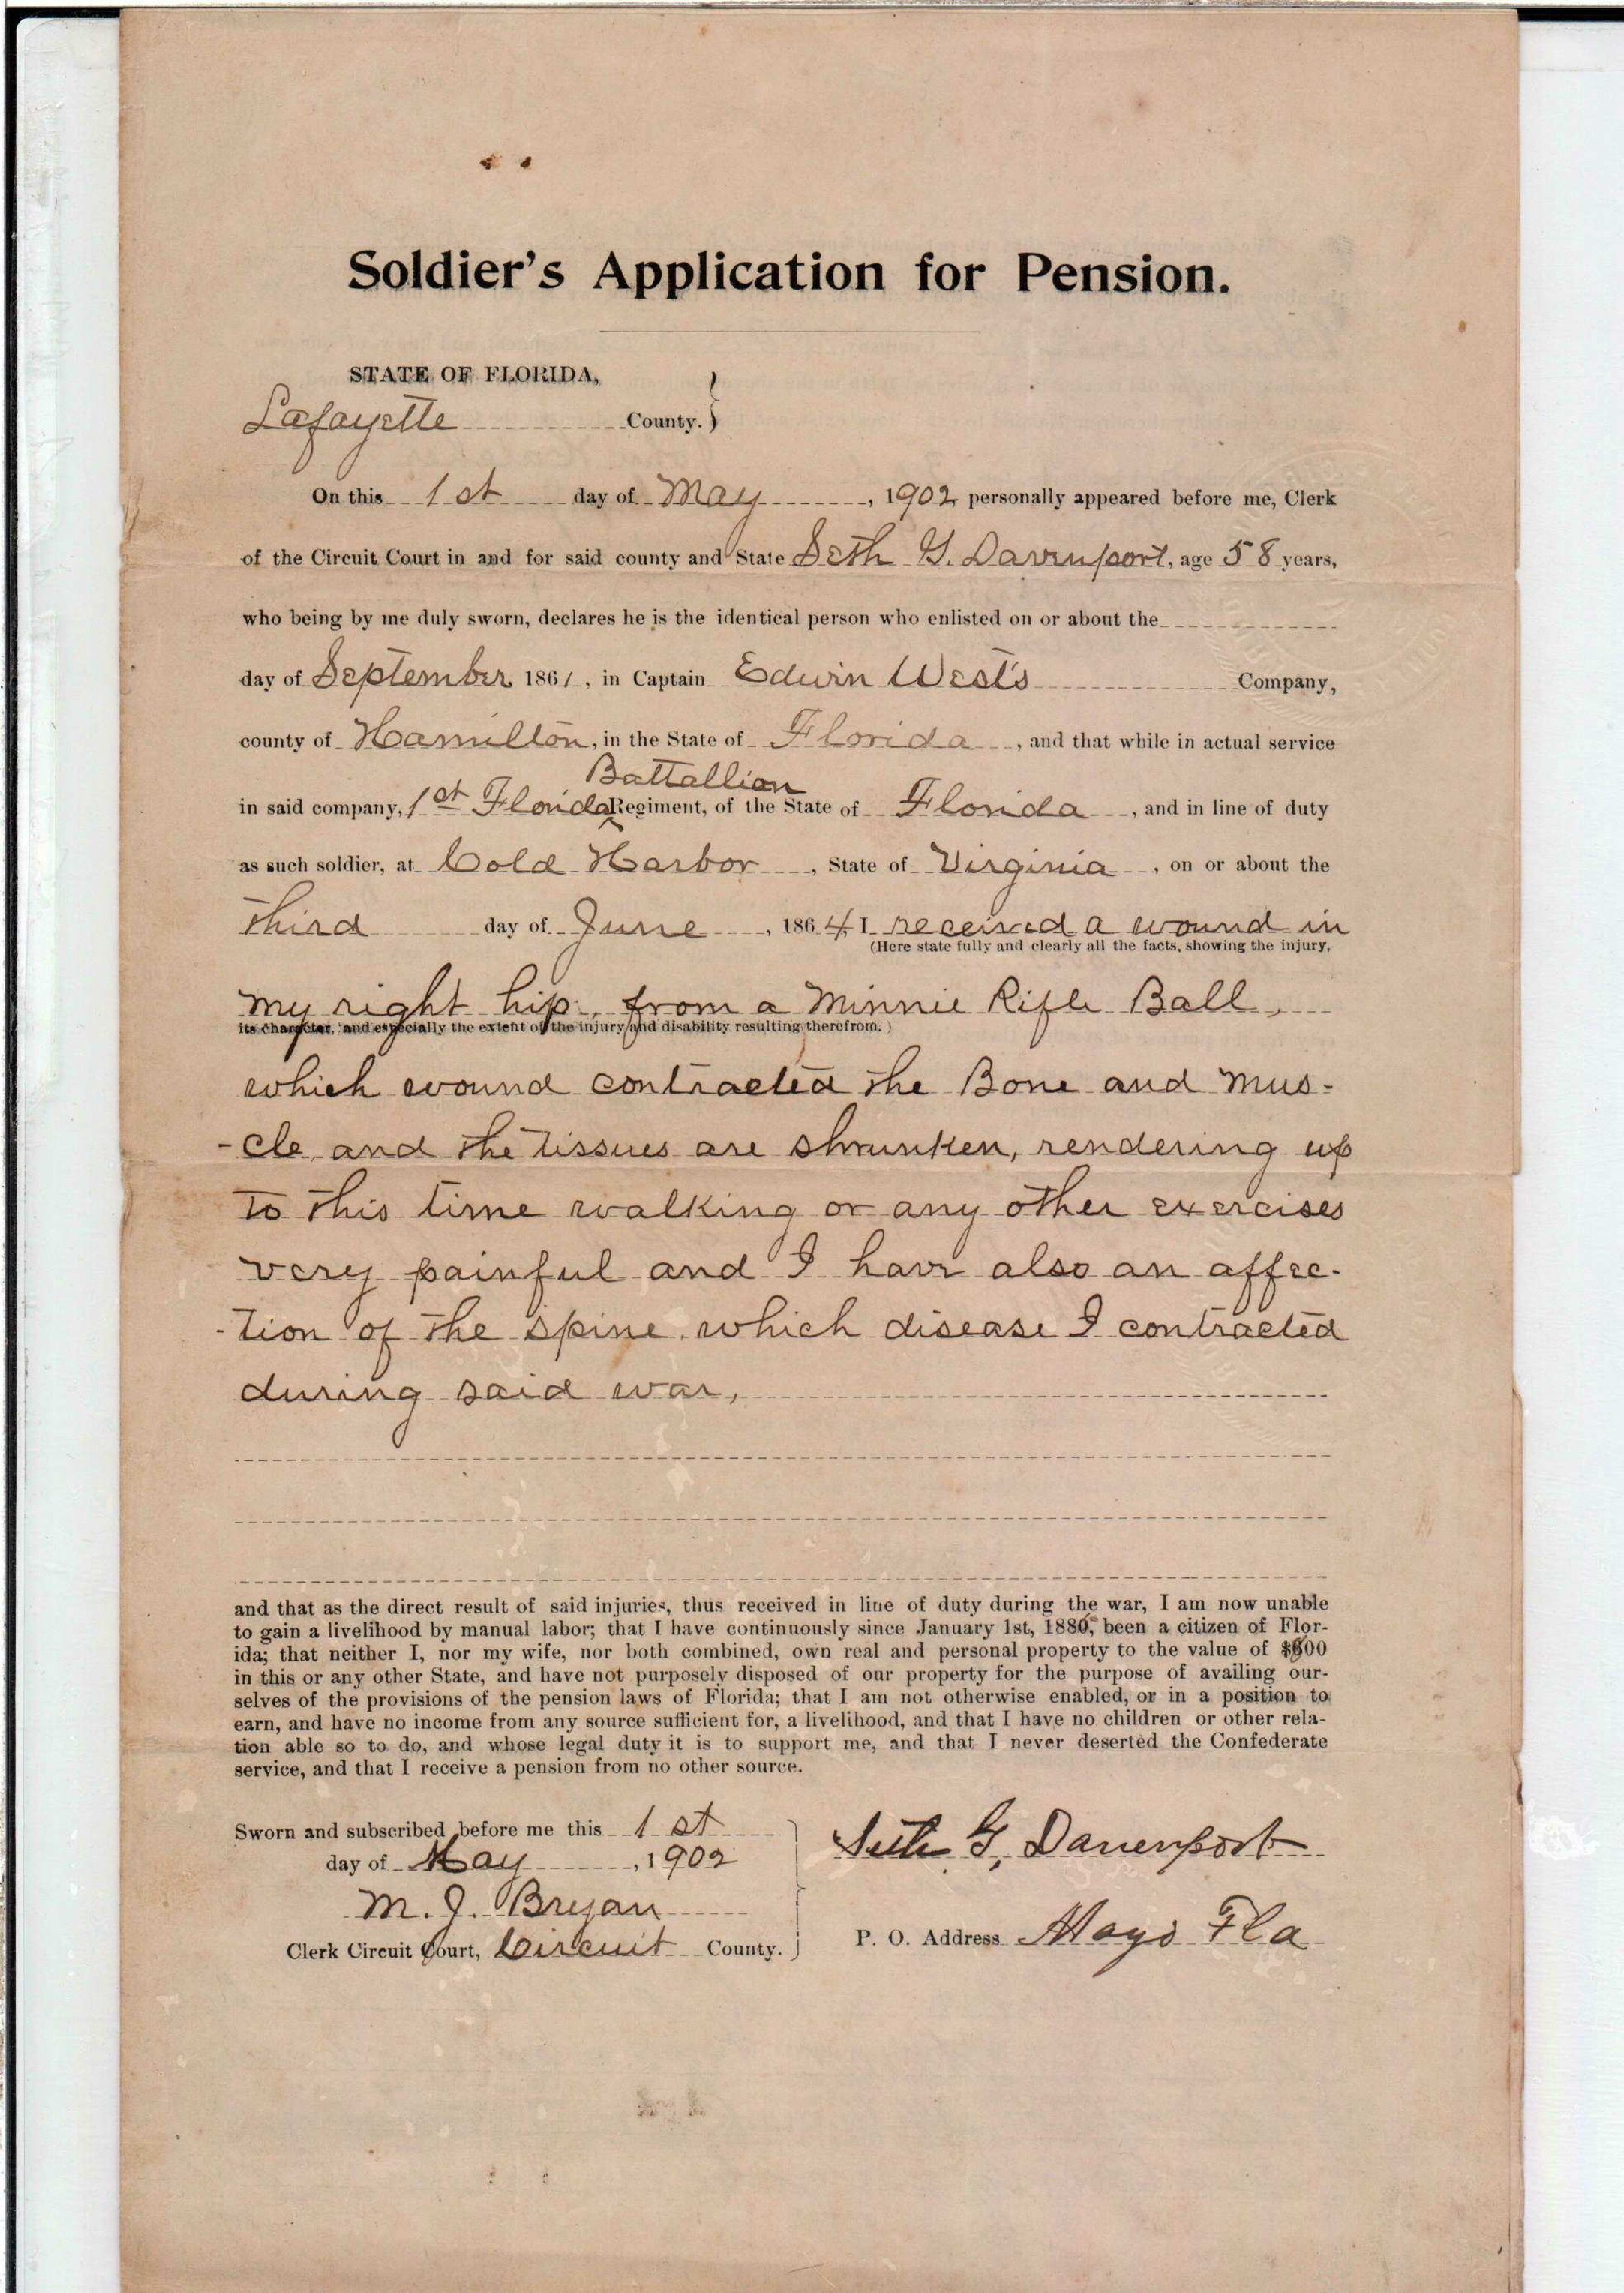 Soldier's Application for Pension.
STATE OF FLORIDA,
Lafayette County. }
On this 1st day of May, 1902, personally appeared before me, Clerk
of the Circuit Court in and for said county and State Seth G. Davenport, age 58 years,
who being by me duly sworn, declares he is the identical person who enlisted on or about the
day of September 1861, in Captain Edwin West's Company,
county of Hamilton, in the State of Florida, and that while in actual service
Battallion
in said company, 1st Florida Regiment, of the State of Florida, and in line of duty
as such soldier, at Cold Harbor, State of Virginia, on or about the
third day of June, 1864, I received a wound in
(Here state fully and clearly all the facts, showing the injury,
my right hip, from a Minnie Rifle Ball,
its character, and especially the extent of the injury and disability resulting therefrom.)
which wound contracted the Bone and mus-
-cle and the tissues are shrunken, rendering up
to this time walking or any other exercises
very painful and I have also an affec-
-tion of the spine which disease I contracted
during said war,
and that as the direct result of said injuries, thus received in line of duty during the war, I am now unable
to gain a livelihood by manual labor; that I have continuously since January 1st, 1880, been a citizen of Flor-
ida; that neither I, nor my wife, nor both combined, own real and personal property to the value of $600
in this or any other State, and have not purposely disposed of our property for the purpose of availing our-
selves of the provisions of the pension laws of Florida; that I am not otherwise enabled, or in a position to
earn, and have no income from any source sufficient for, a livelihood, and that I have no children or other rela-
tion able so to do, and whose legal duty it is to support me, and that I never deserted the Confederate
service, and that I receive a pension from no other source.
Sworn and subscribed before me this 1st
day of May, 1902
M. J. Bryan
Clerk Circuit Court, Circuit County. }
Seth G, Davenport
P. O. Address Mayo Fla